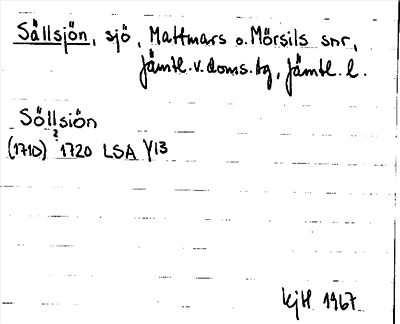 Sällsjön, sjö, Mattmars o. Mörsils snr,
Jämtl. v. doms. tg, Jämtl. l.
Söllsiön
?
(1710) 1720 LSA Y13
kjH 1967